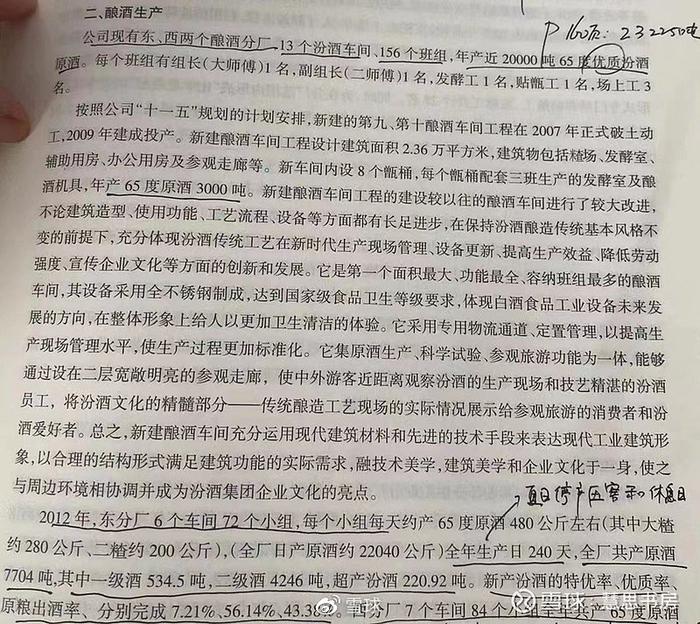 二、酿酒生产
P160页: 232250吨
公司现有东、西两个酿酒分厂,13个汾酒车间、156个班组,年产近20000吨65度优质汾酒
原酒。每个班组有组长(大师傅)1名,副组长(二师傅)1名,发酵工1名,贴甑工1名,场上工3
名。
按照公司“十一五”规划的计划安排,新建的第九、第十酿酒车间工程在2007年正式破土动
工,2009年建成投产。新建酿酒车间工程设计建筑面积2.36万平方米,建筑物包括糙场、发酵室、
辅助用房、办公用房及参观走廊等。新车间内设8个甑桶,每个甑桶配套三班生产的发酵室及酿
酒机具,年产65度原酒3000吨。新建酿酒车间工程的建设较以往的酿酒车间进行了较大改进,
不论建筑造型、使用功能、工艺流程、设备等方面都有长足进步,在保持汾酒酿造传统基本风格不
变的前提下,充分体现汾酒传统工艺在新时代生产现场管理、设备更新、提高生产效益、降低劳动
强度、宣传企业文化等方面的创新和发展。它是第一个面积最大、功能最全、容纳班组最多的酿酒
车间,其设备采用全不锈钢制成,达到国家级食品卫生等级要求,体现白酒食品工业设备未来发
展的方向,在整体形象上给人以更加卫生清洁的体验。它采用专用物流通道、定置管理,以提高生
产现场管理水平,使生产过程更加标准化。它集原酒生产、科学试验、参观旅游功能为一体,能够
通过设在二层宽敞明亮的参观走廊,使中外游客近距离观察汾酒的生产现场和技艺精湛的汾酒
员工,将汾酒文化的精髓部分——传统酿造工艺现场的实际情况展示给参观旅游的消费者和汾
酒爱好者。总之,新建酿酒车间充分运用现代建筑材料和先进的技术手段来表达现代工业建筑形
象,以合理的结构形式满足建筑功能的实际需求,融技术美学,建筑美学和企业文化于一身,使之
与周边环境相协调并成为汾酒集团企业文化的亮点。
夏日停产历害和休息日
2012年,东分厂6个车间72个小组,每个小组每天约产65度原酒480公斤左右(其中大楂
约280公斤、二楂约200公斤),(全厂日产原酒约22040公斤)全年生产日240天,全厂共产原酒
7704吨,其中一级酒534.5吨,二级酒4246吨,超产汾酒220.92吨。新产汾酒的特优率、优质率、
原粮出酒率、分别完成7.21%、56.14%、43.38%。西分厂7个车间84个小组全年共产65度原酒
雪球
雪球:慧思书房